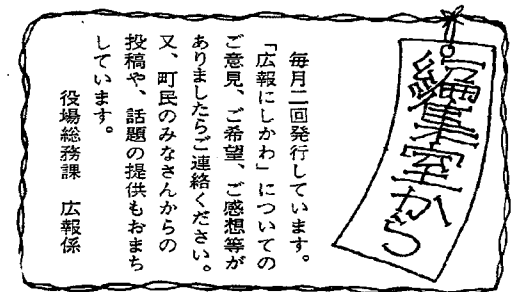 編集室から
毎月二回発行しています。
「広報にしかわ」についての
ご意見、ご希望、ご感想等が
ありましたらご連絡ください。
又、町民のみなさんからの
投稿や、話題の提供もおまち
しています。
役場総務課　広報係